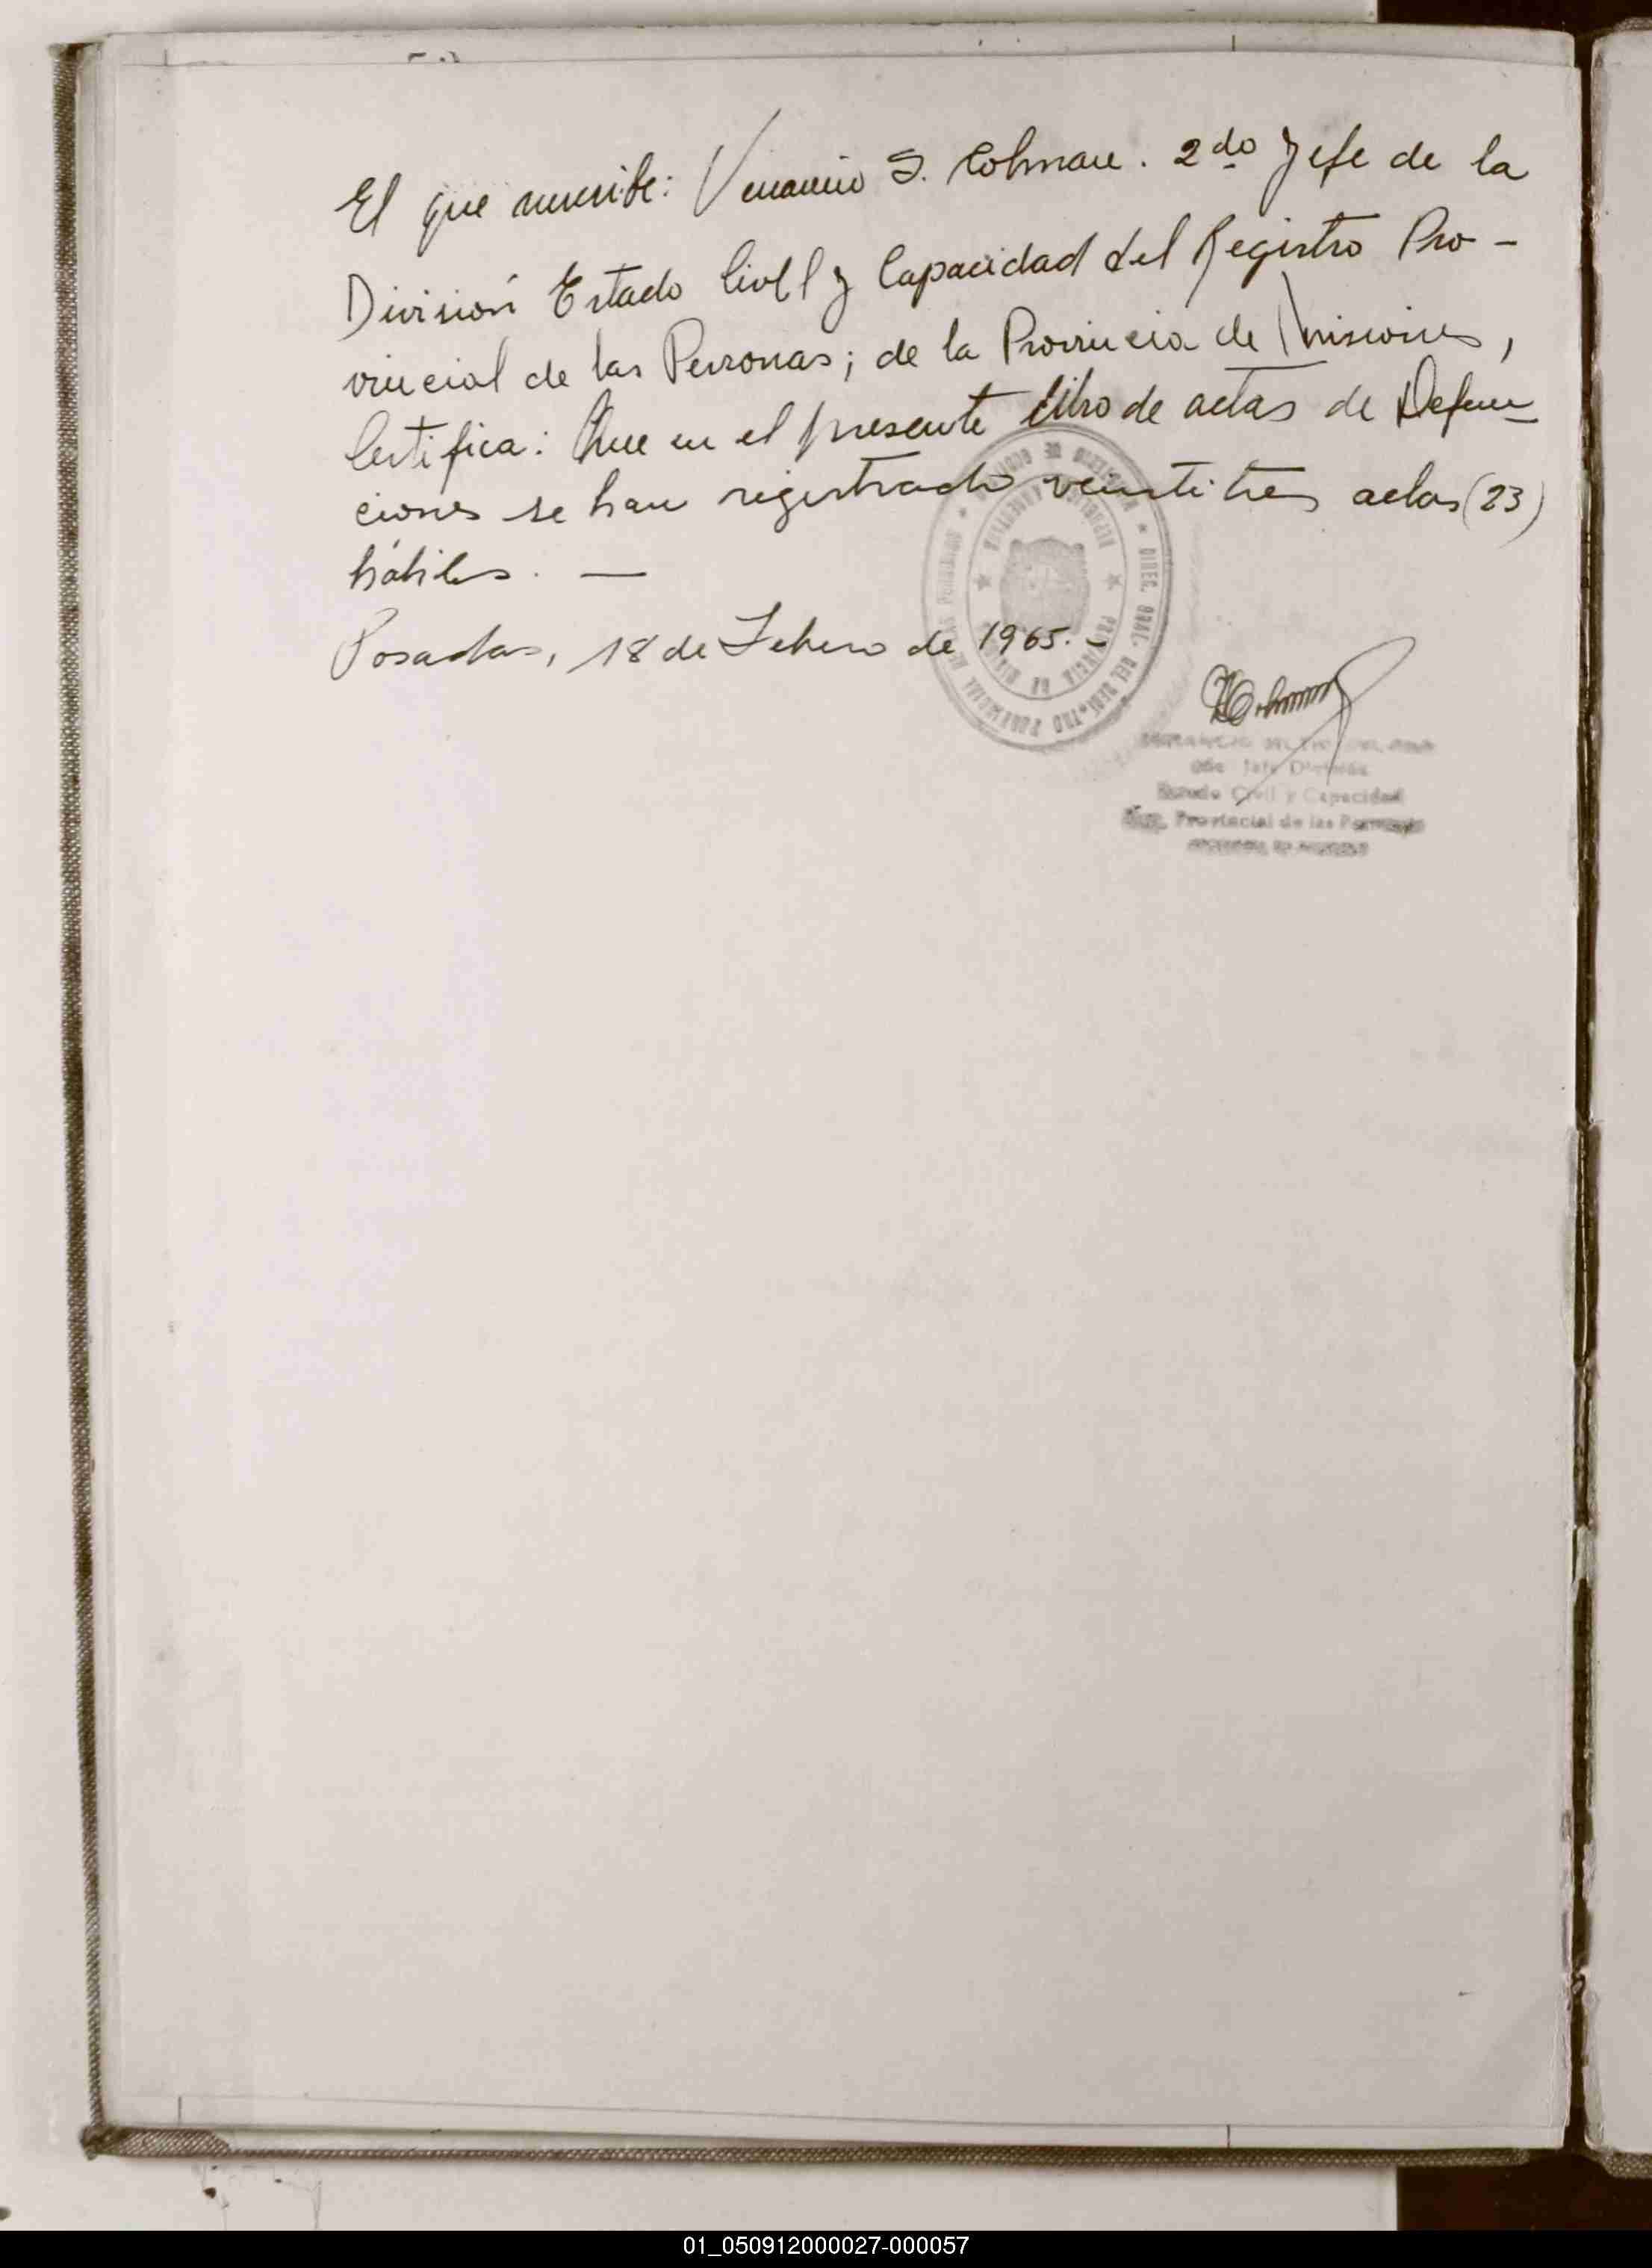 El que suscribe: Venancio S. Colman. 2do Jefe de la
División Estado Civil y Capacidad del Registro Pro-
vincial de las Personas; de la Provincia de Misiones,
Certifica: Que en el presente libro de actas de Defun-
ciones se han registrado veintitres actas (23)
hábiles. —
Posadas, 18 de Febrero de 1965.-
Jefe División
Estado Civil y Capacidad
Provincial de las Personas
01_050912000027-000057